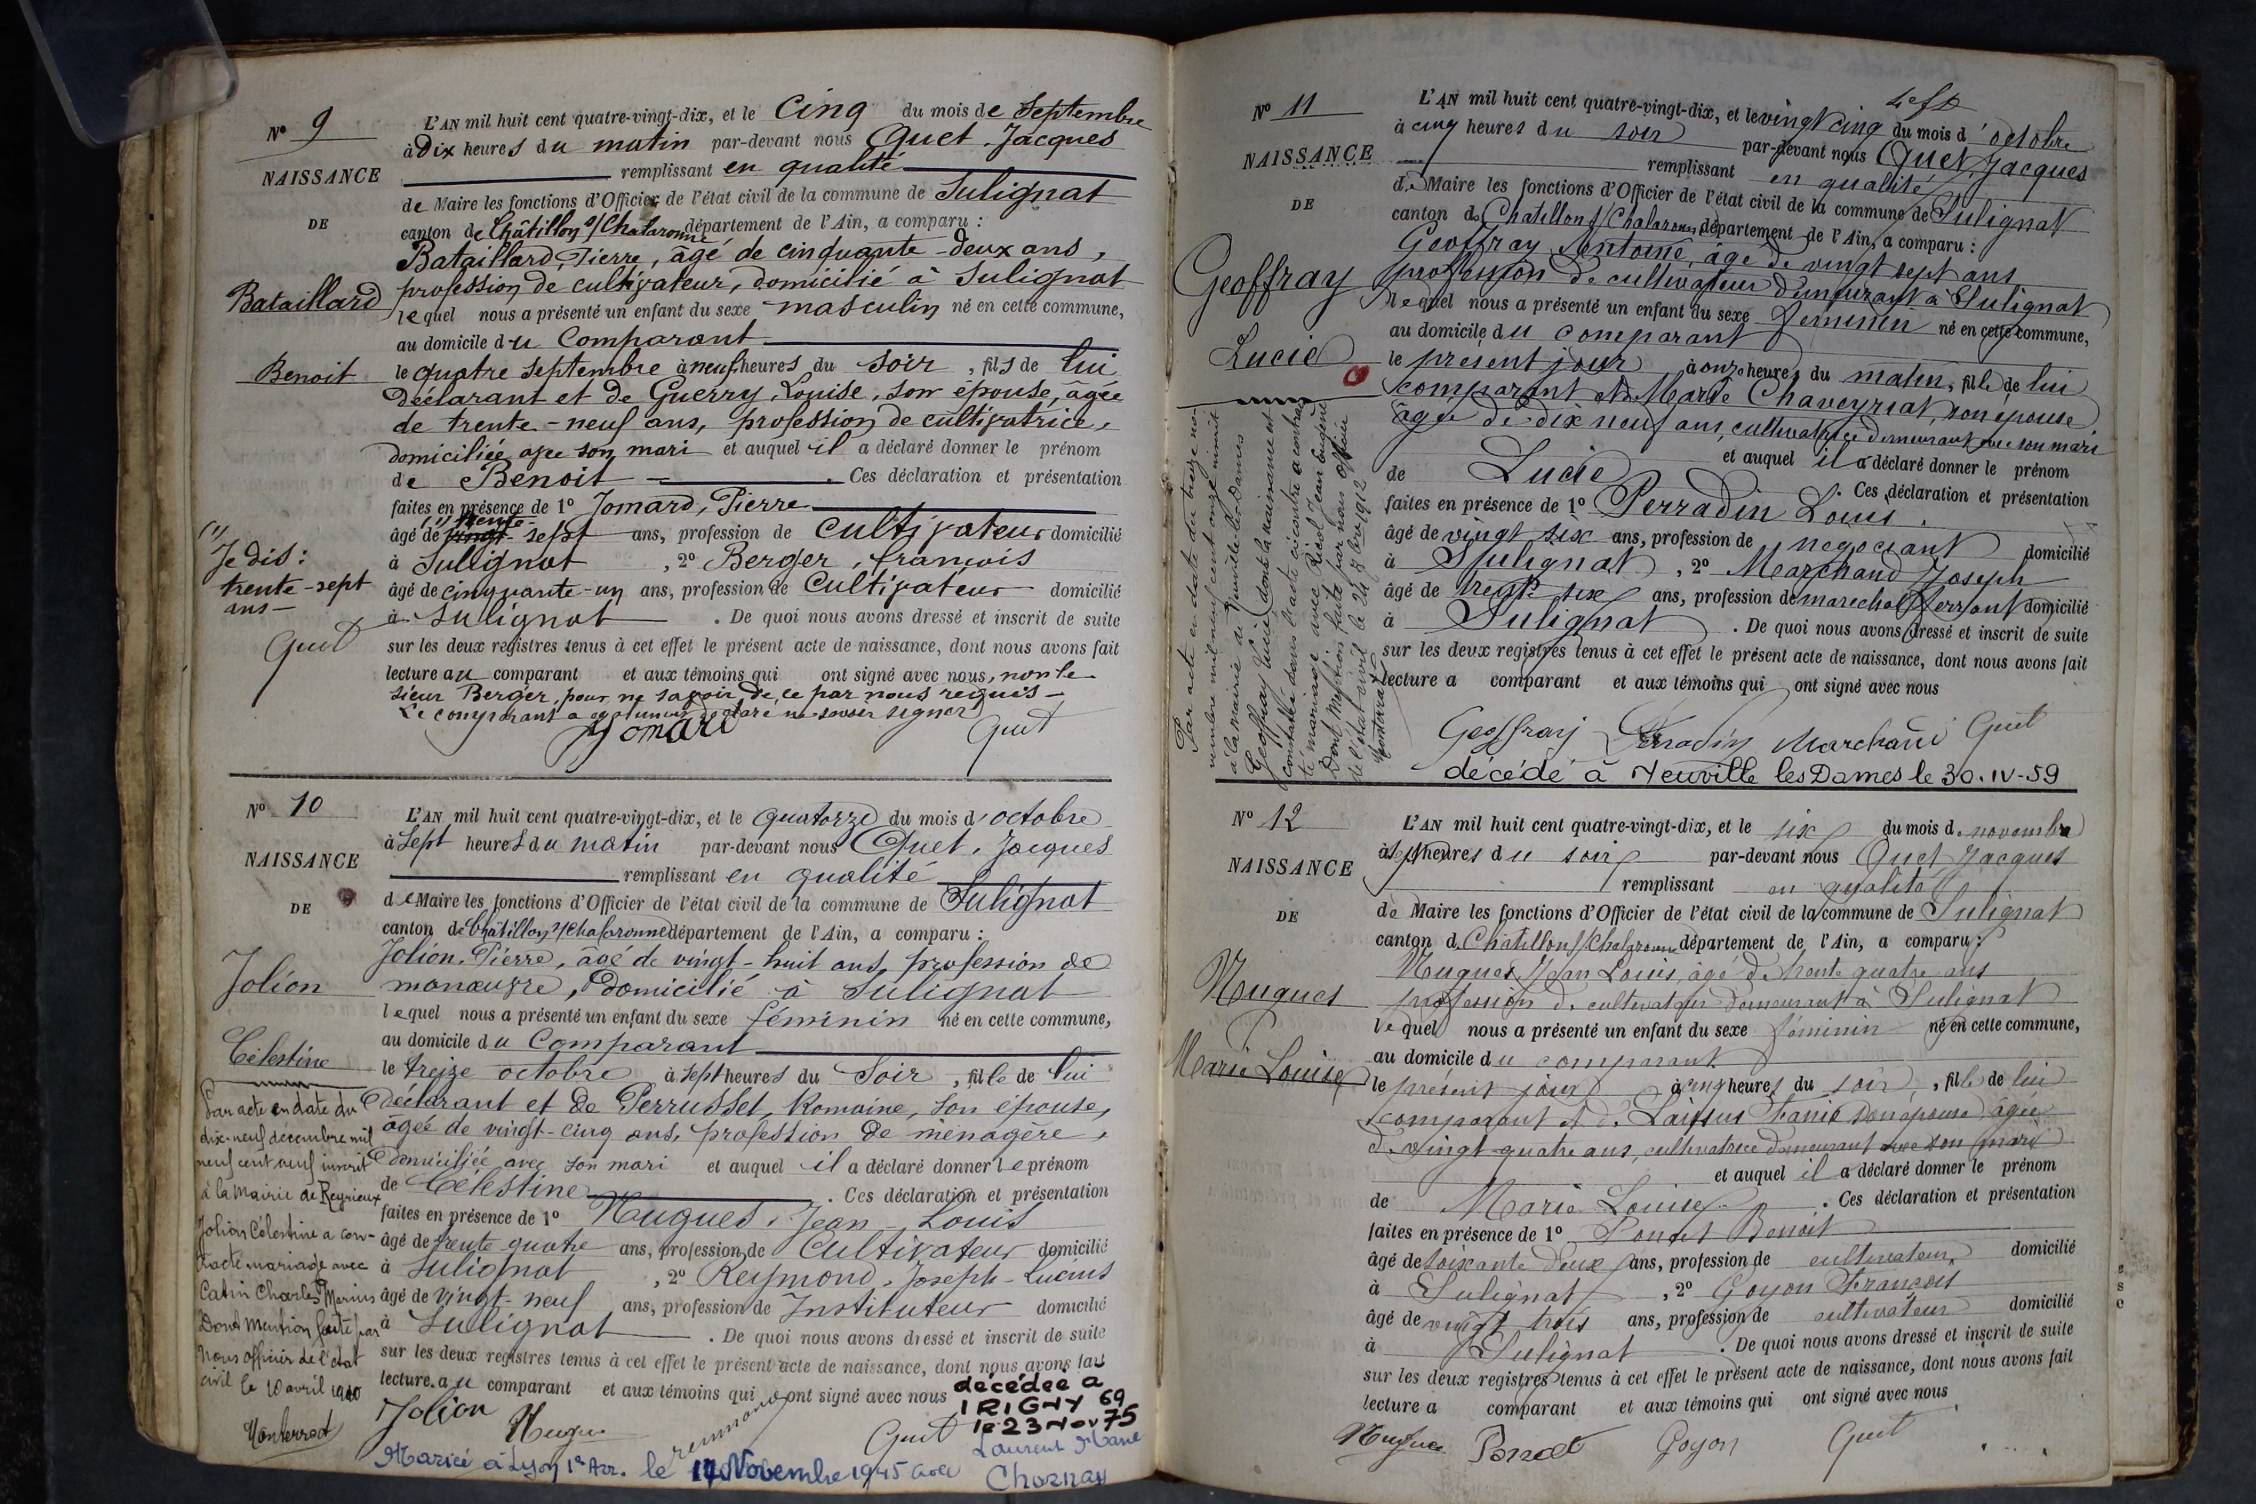 N° 9
NAISSANCE
DE
Bataillard
Benoit
L'AN mil huit cent quatre-vingt-dix, et le cinq du mois de Septembre
à dix heures du matin par-devant nous Quet, Jacques
remplissant en qualité
de Maire les fonctions d'Officier de l'état civil de la commune de Sulignat
canton de Châtillon s/Chalaronne département de l'Ain, a comparu :
Bataillard, Pierre, âgé de cinquante-deux ans,
profession de cultivateur, domicilié à Sulignat
lequel nous a présenté un enfant du sexe masculin né en cette commune,
au domicile du Comparant
le quatre septembre à neuf heures du soir, fils de lui
déclarant et de Guerry, Louise, son épouse, âgée
de trente-neuf ans, profession de cultivatrice,
domiciliée avec son mari et auquel il a déclaré donner le prénom
de Benoit. Ces déclaration et présentation
faites en présence de 1° Jomard, Pierre
(1) trente
âgé de vingt-sept ans, profession de cultivateur domicilié
à Sulignat, 2° Berger, françois
âgé de cinquante-un ans, profession de Cultivateur domicilié
à Sulignat. De quoi nous avons dressé et inscrit de suite
sur les deux registres tenus à cet effet le présent acte de naissance, dont nous avons fait
lecture au comparant et aux témoins qui ont signé avec nous, non le
sieur Berger, pour ne savoir, de ce par nous requis
Le comparant a également déclaré ne savoir signer
Jomard Quet
(1)
Je dis :
trente-sept
ans
Quet
N° 10
NAISSANCE
DE
Jolion
Célestine
L'AN mil huit cent quatre-vingt-dix, et le quatorze du mois d'octobre
à sept heures du matin par-devant nous Quet, Jacques
remplissant en qualité
de Maire les fonctions d'Officier de l'état civil de la commune de Sulignat
canton de Châtillon s/Chalaronne département de l'Ain, a comparu :
Jolion, Pierre, âgé de vingt-huit ans, profession de
manœuvre, domicilié à Sulignat
lequel nous a présenté un enfant du sexe féminin né en cette commune,
au domicile du Comparant
le treize octobre à sept heures du Soir, fille de lui
déclarant et de Perrusset, Romaine, son épouse,
âgée de vingt-cinq ans, profession de ménagère,
domiciliée avec son mari et auquel il a déclaré donner le prénom
de Célestine. Ces déclaration et présentation
faites en présence de 1° Nugues, Jean-Louis
âgé de trente-quatre ans, profession de Cultivateur domicilié
à Sulignat, 2° Reymond, Joseph-Lucius
âgé de vingt-neuf ans, profession de Instituteur domicilié
à Sulignat. De quoi nous avons dressé et inscrit de suite
sur les deux registres tenus à cet effet le présent acte de naissance, dont nous avons fait
lecture au comparant et aux témoins qui ont signé avec nous
Jolion Nugues Reymond Quet
décédée à
IRIGNY 69
le 23 Nov 75
Mariée à Lyon 1er Arr. le 17 Novembre 1945 avec Laurent Marie
Charnay
Par acte en date du
dix-neuf décembre mil
neuf cent neuf inscrit
à la Mairie de Reyrieux
Jolion Célestine a con-
tracté mariage avec
Catin Charles Marius
Dont mention faite par
nous officier de l'état
civil le 10 avril 1910
Monterrat
N° 11
NAISSANCE
DE
Geoffray
Lucie
L'AN mil huit cent quatre-vingt-dix, et le vingt cinq du mois d'octobre
à cinq heures du soir par-devant nous Quet, Jacques
remplissant en qualité
de Maire les fonctions d'Officier de l'état civil de la commune de Sulignat
canton de Chatillon s/Chalaronne département de l'Ain, a comparu :
Geoffray Antoine, âgé de vingt sept ans
profession de cultivateur demeurant à Sulignat
lequel nous a présenté un enfant du sexe feminin né en cette commune,
au domicile du comparant
le present jour à onze heures du matin, fille de lui
comparant et de Marie Chaveyriat, son épouse
âgée de dix neuf ans, cultivatrice demeurant avec son mari
et auquel il a déclaré donner le prénom
de Lucie. Ces déclaration et présentation
faites en présence de 1° Perradin Louis
âgé de vingt six ans, profession de negociant domicilié
à Sulignat, 2° Marchand Joseph
âgé de vingt six ans, profession de marechal ferrant domicilié
à Sulignat. De quoi nous avons dressé et inscrit de suite
sur les deux registres tenus à cet effet le présent acte de naissance, dont nous avons fait
lecture a comparant et aux témoins qui ont signé avec nous
Geoffray Perradin Marchand Quet
décédé à Neuville les Dames le 30.IV-59
Par acte en date du treize no-
vembre mil neuf cent onze inscrit
à la mairie de Neuville-les-Dames
Geoffray Lucie (dont la naissance est
constatée dans l'acte ci-contre a contrac-
té mariage avec Riol Jean Eugène
Dont Mention faite par nous officier
de l'état civil le 24 7bre 1912
Monterrat
N° 12
NAISSANCE
DE
Nugues
Marie Louise
L'AN mil huit cent quatre-vingt-dix, et le six du mois de novembre
à sept heures du soir par-devant nous Quet Jacques
remplissant en qualité
de Maire les fonctions d'Officier de l'état civil de la commune de Sulignat
canton de Chatillon s/Chalaronne département de l'Ain, a comparu :
Nugues Jean Louis, âgé de trente quatre ans
profession de cultivateur demeurant à Sulignat
lequel nous a présenté un enfant du sexe féminin né en cette commune,
au domicile du comparant
le présent jour à cinq heures du soir, fille de lui
comparant et de Laissus Fanie son épouse âgée
de vingt quatre ans, cultivatrice demeurant avec son mari
et auquel il a déclaré donner le prénom
de Marie Louise. Ces déclaration et présentation
faites en présence de 1° Poncet Benoit
âgé de soixante deux ans, profession de cultivateur domicilié
à Sulignat, 2° Goyon François
âgé de vingt trois ans, profession de cultivateur domicilié
à Sulignat. De quoi nous avons dressé et inscrit de suite
sur les deux registres tenus à cet effet le présent acte de naissance, dont nous avons fait
lecture a comparant et aux témoins qui ont signé avec nous
Nugues Poncet Goyon Quet